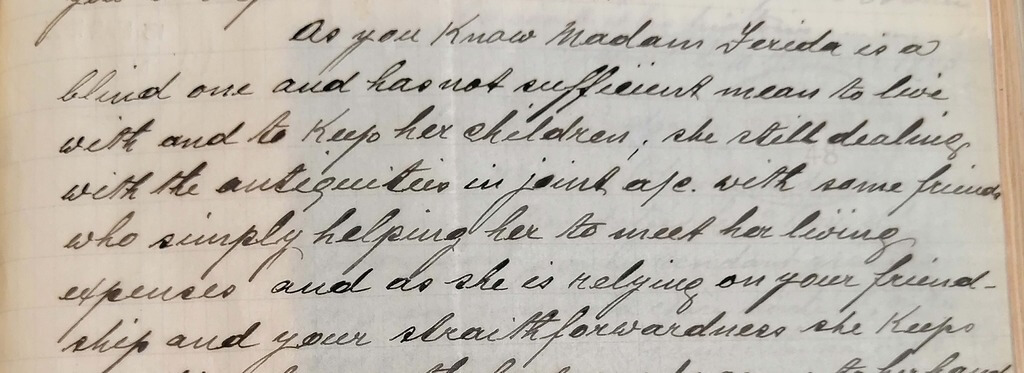 As you Know Madam Ferida is a
blind one and has not sufficient mean to live
with and to Keep her children, she still dealing
with the antiquities in joint a/c. with some friends
who simply helping her to meet her living
expenses and as she is relying on your friend-
ship and your straithforwardness she Keeps
to her hand